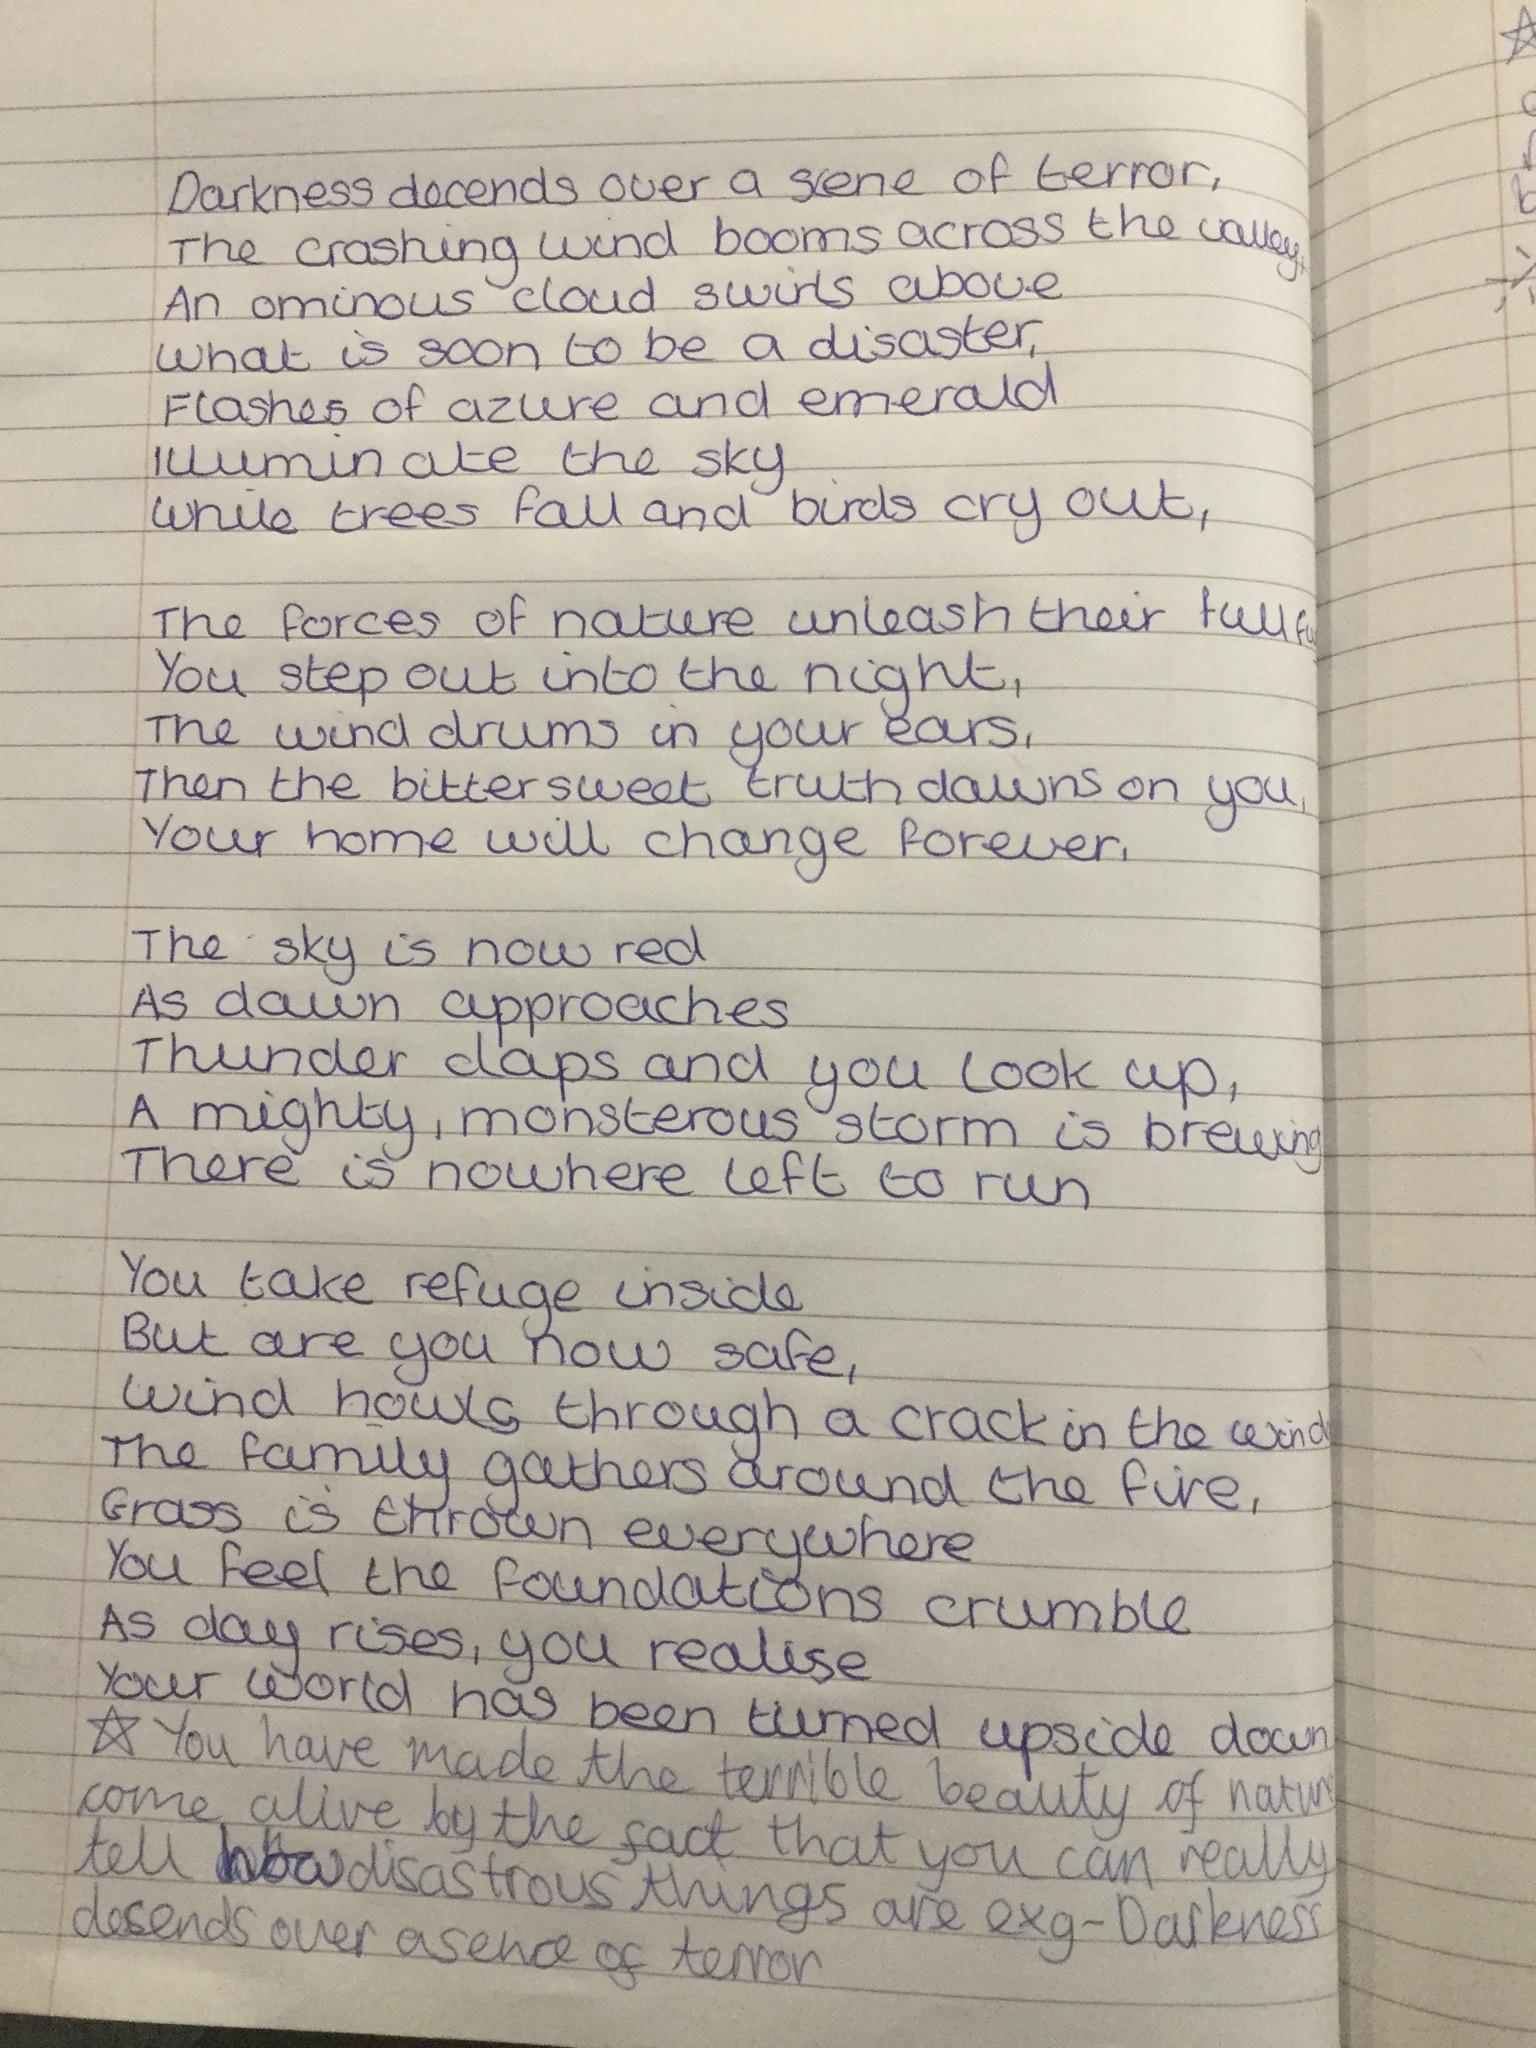 Darkness decends over a scene of terror,
The crashing wind booms across the valley,
An ominous cloud swirls above
What is soon to be a disaster,
Flashes of azure and emerald
Illuminate the sky
While trees fall and birds cry out,
The forces of nature unleash their full
You step out into the night,
The wind drums in your ears,
Then the bittersweet truth dawns on you,
Your home will change forever,
The sky is now red
As dawn approaches
Thunder claps and you look up,
A mighty, monsterous storm is brewing
There is nowhere left to run
You take refuge inside
But are you now safe,
Wind howls through a crack in the wind
The family gathers around the fire,
Grass is thrown everywhere
You feel the foundations crumble
As day rises, you realise
Your world has been turned upside down
☆ You have made the terrible beauty of natur
come alive by the fact that you can really
tell how disastrous things are exg-Darkness
desends over a sence of terror